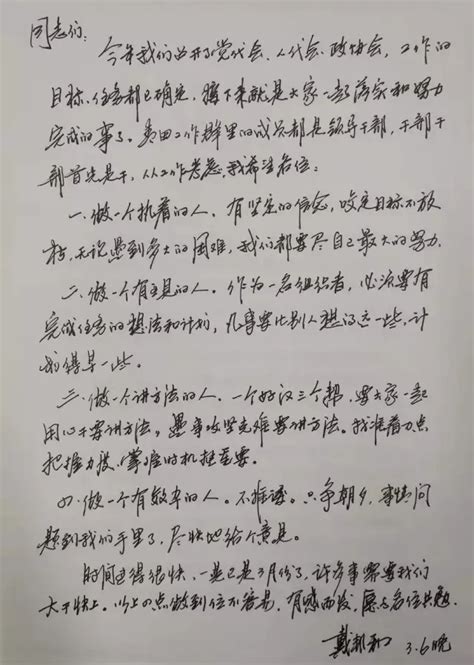 同志们:
今年我们召开了党代会、人代会、政协会,工作的
目标、任务都已确定,接下来就是大家一起落实和努力
完成的事了。工作群里的成员都是领导干部,干部干
部首先是干,从工作考虑,我希望各位:
一、做一个执着的人。有坚定的信念,咬定目标不放
松,无论遇到多大的困难,我们都要尽自己最大的努力.
二、做一个有主见的人。作为一名组织者,必须要有
完成任务的想法和计划,凡事要比别人想得远一些,计
划得早一些.
三、做一个讲方法的人.一个好汉三个帮,要大家一起
用心干要讲方法。遇事攻坚克难要讲方法。找准着力点
把握力度、掌握时机挺重要.
四、做一个有效率的人。不推诿。只争朝夕,事情问
题到我们手里了,尽快地给个意见。
时间过得很快,一晃已是3月份了,许多事需要我们
大干快上。以上四点做到位不容易,有感而发,愿与各位共勉.
戴邦和 3.6晚